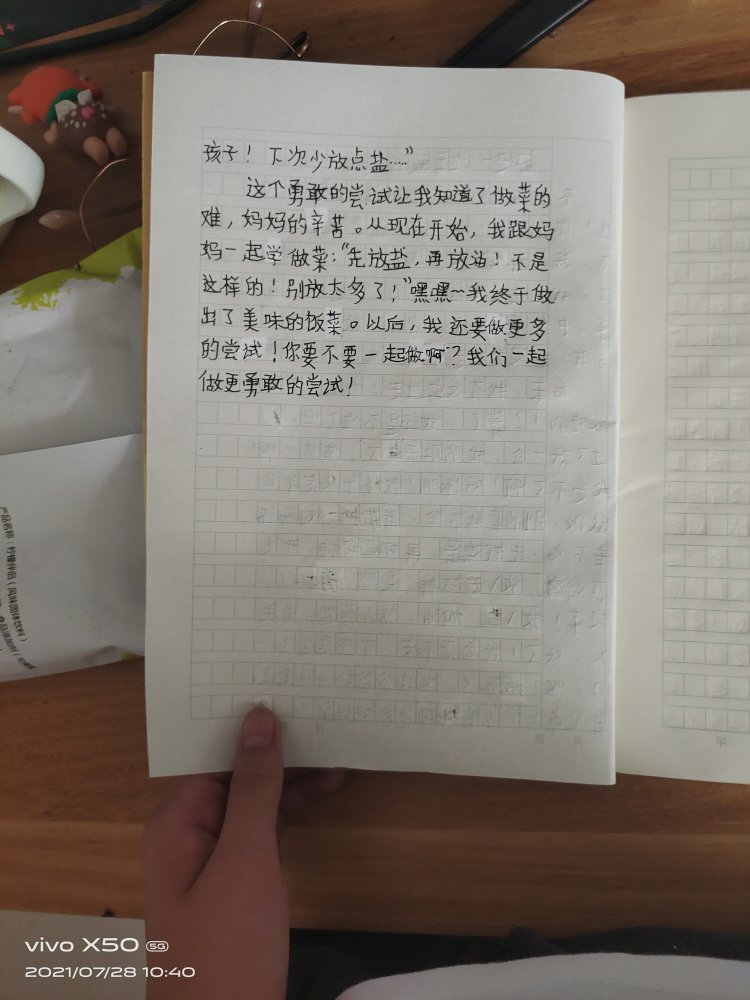 孩子！下次少放点盐……”
这个勇敢的尝试让我知道了做菜的
难，妈妈的辛苦。从现在开始，我跟妈
妈一起学做菜：“先放盐，再放油！不是
这样的！别放太多了！”嘿嘿~我终于做
出了美味的饭菜。以后，我还要做更多
的尝试！你要不要一起做啊？我们一起
做更勇敢的尝试！
产品名称：柠檬伴侣（风味固体饮料）
年
vivo X50 5G
2021/07/28 10:40